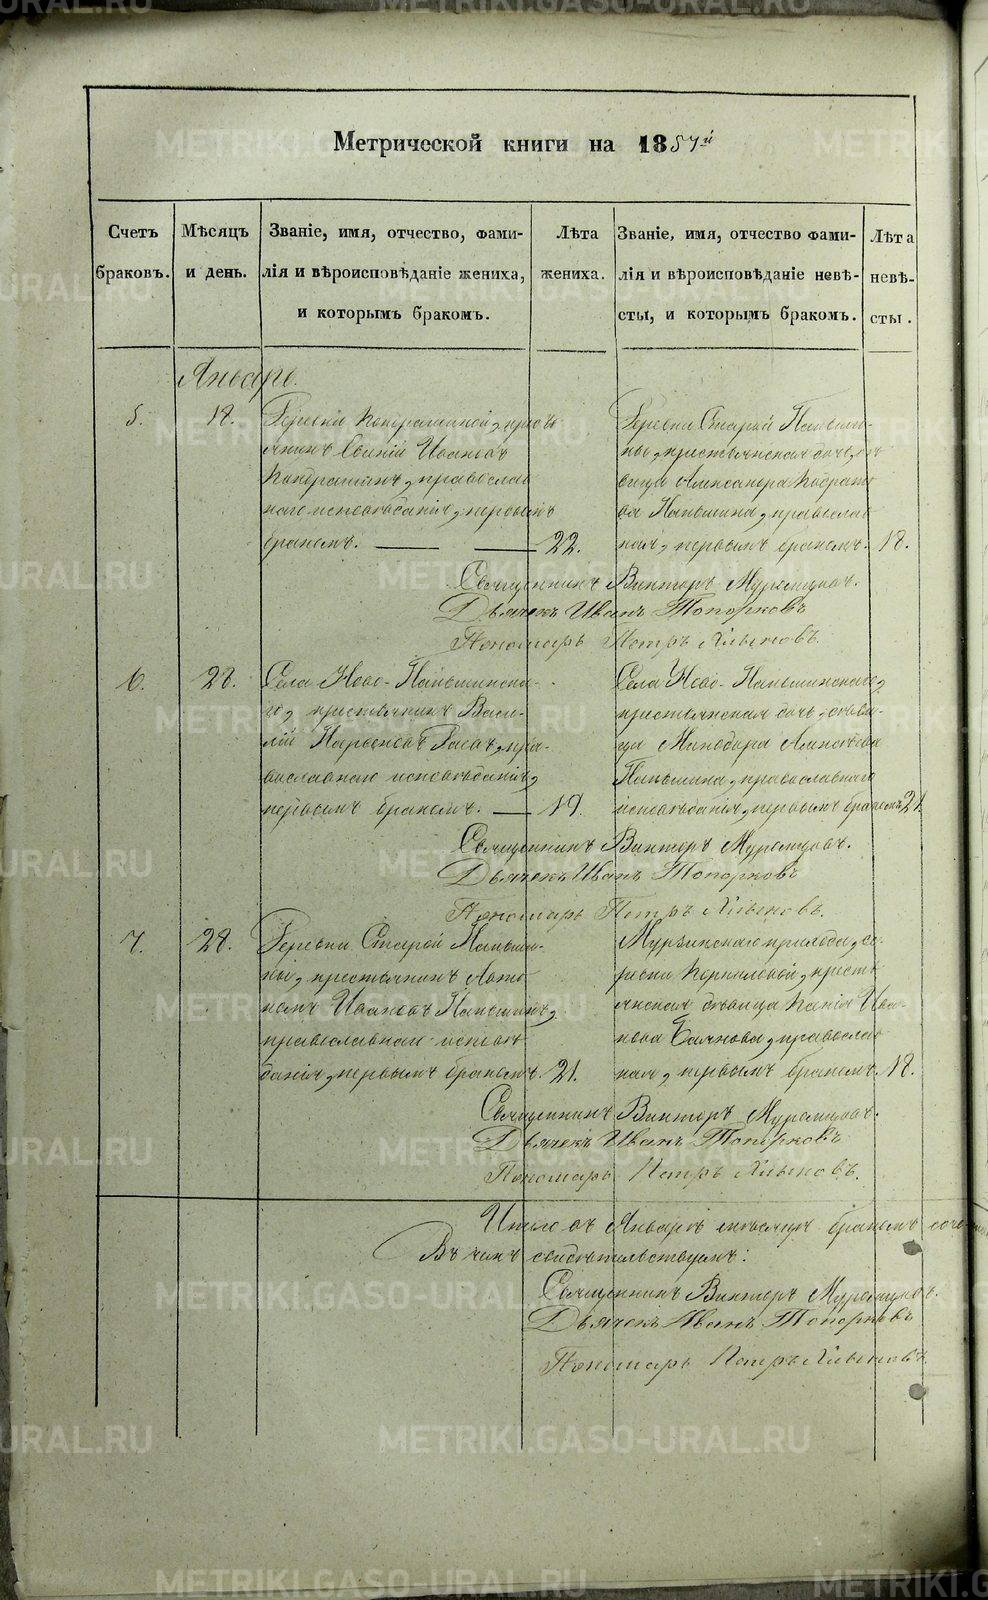 Метрической книги на 1857й
Счетъ браковъ.
Мѣсяцъ и день.
Званіе, имя, отчество, фами-
лія и вѣроисповѣданіе жениха,
и которымъ бракомъ.
Лѣта
жениха.
Званіе, имя, отчество фами-
лія и вѣроисповѣданіе невѣ-
сты, и которымъ бракомъ.
Лѣта
невѣ-
сты.
Январь.
5.
18.
Деревни Кондрашиной, кресть
янинъ Иванов
Кондрашинъ, православ
наго исповѣданія, первымъ
бракомъ.
22.
Деревни Старой Паньши-
ны, крестьянская дочь, дѣ
вица Александра Кодрать
ва Паньшина, православ
ная, первымъ бракомъ.
18.
Священникъ Викторъ Муромцовъ.
Дьячекъ Иванъ Топорковъ
Пономарь Петръ Хлыновъ.
6.
28.
Села Ново-Паньшинска-
го, крестьянинъ Васи-
лій, пра-
вославнаго исповѣданія,
первымъ бракомъ.
19.
Села Ново-Паньшинскаго,
крестьянская дочь, дѣви-
ца Минодора Алексѣева
Паньшина, православнаго
исповѣданія, первымъ бракомъ
21.
Священникъ Викторъ Муромцовъ.
Дьячекъ Иванъ Топорковъ
Пономарь Петръ Хлыновъ.
7.
28.
Деревни Старой Паньши-
ны, крестьянинъ Авто-
номъ Ивановъ Паньшинъ,
православнаго исповѣ
данія, первымъ бракомъ.
21.
Мурзинскаго прихода, де-
ревни Корниловой, кресть
янская дѣвица Ксенія Ива-
нова, православ
ная, первымъ бракомъ.
18.
Священникъ Викторъ Муромцовъ.
Дьячекъ Иванъ Топорковъ
Пономарь Петръ Хлыновъ.
Итого въ Январѣ мѣсяцѣ бракомъ
Въ чемъ свидѣтельствуемъ:
Священникъ Викторъ Муромцовъ.
Дьячекъ Иванъ Топорковъ
Пономарь Петръ Хлыновъ.
METRIKI.GASO-URAL.RU